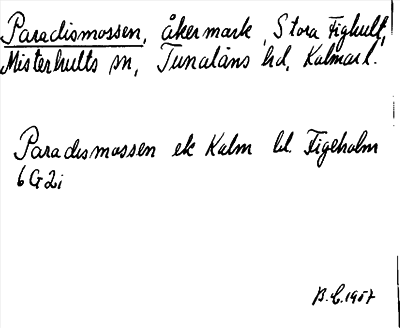 Paradismossen, åkermark, Stora Fighult,
Misterhults sn, Tunaläns hd, Kalmar l.
Paradismossen ek Kalm bl. Figeholm
6G2i
B.C. 1957